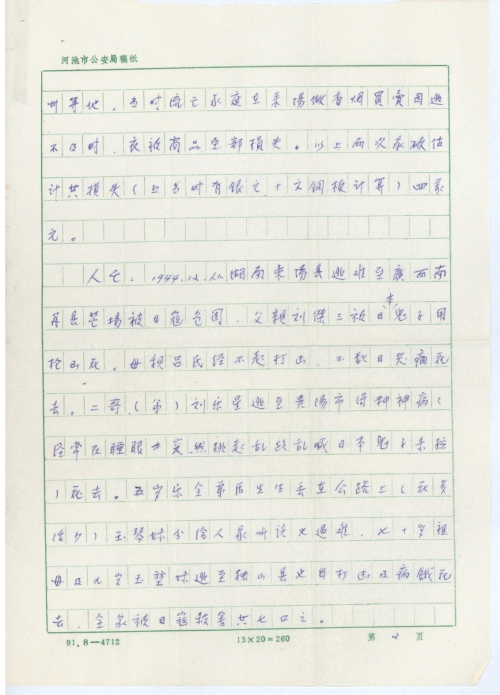 河池市公安局稿纸
州等地，当时流亡家庭在耒阳做香烟买卖因逃
不及时，衣被商品全部损失。以上两次家破估
计共损失（ 当时有银元、十文铜板计算）四万
元。
人亡：1944.12.从湖南耒阳县逃难至广西南
丹县芒场被日寇包围，父亲刘保三被日本鬼子用
枪 死。母亲吕氏经不起打击，不 日哭病死
去。二哥（弟）刘乐星逃至贵阳市得神神病（
经常在睡眠中突然挑起乱跑乱喊日本鬼子来拉
）死去。五岁乐全弟 生生丢在公路上（死多
活少）玉琴妹分给人家听说也遇难，七十岁祖
母及九岁玉 妹逃至独山县也因打击及病饿死
去，全家被日寇杀害共七口之。
91.8—4712
13×20=260
第 2 页